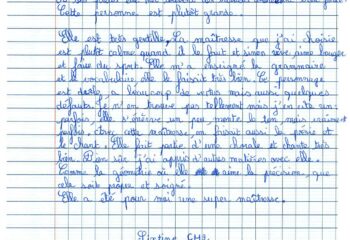 Cette personne est plutôt grande.
Elle est très gentille. La maîtresse que j'ai choisie
est plutôt calme quand il le faut et sinon rêve, aime bouger
et faire du sport. Elle m'a enseigné la grammaire
et le vocabulaire elle le faisait très bien. Ce personnage
est doté a beaucoup de vertus mais aussi quelques
défauts. Je n'en trouve pas tellement mais j'en cite un
parfois, elle s'énerve un peu, monte le ton mais crie
parfois. Avec cette maîtresse, on faisait aussi la poésie et
le chant. Elle fait partie d'une chorale et chante très
bien. Bien sûr j'ai appris d'autres matières avec elle.
Comme la géométrie où elle aime la précision, que
cela soit propre et soigné.
Elle a été pour moi une super maîtresse.
CM2